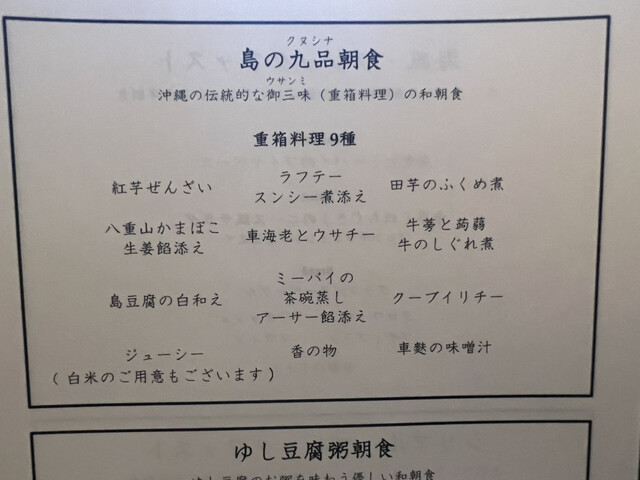 クヌシナ
島の九品朝食
ウサンミ
沖縄の伝統的な御三味（重箱料理）の和朝食
重箱料理9種
紅芋ぜんざい
ラフテー
スンシー煮添え
田芋のふくめ煮
八重山かまぼこ
生姜餡添え
車海老とウサチー
牛蒡と蒟蒻
牛のしぐれ煮
島豆腐の白和え
ミーバイの
茶碗蒸し
アーサー餡添え
クーブイリチー
ジューシー
（白米のご用意もございます）
香の物
車麩の味噌汁
ゆし豆腐粥朝食
ゆし豆腐のお粥を味わう優しい和朝食